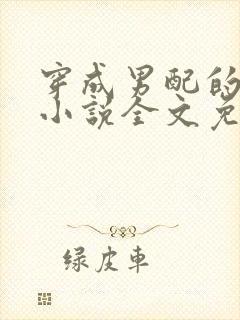 穿成男配的
小说全文免
绿皮車